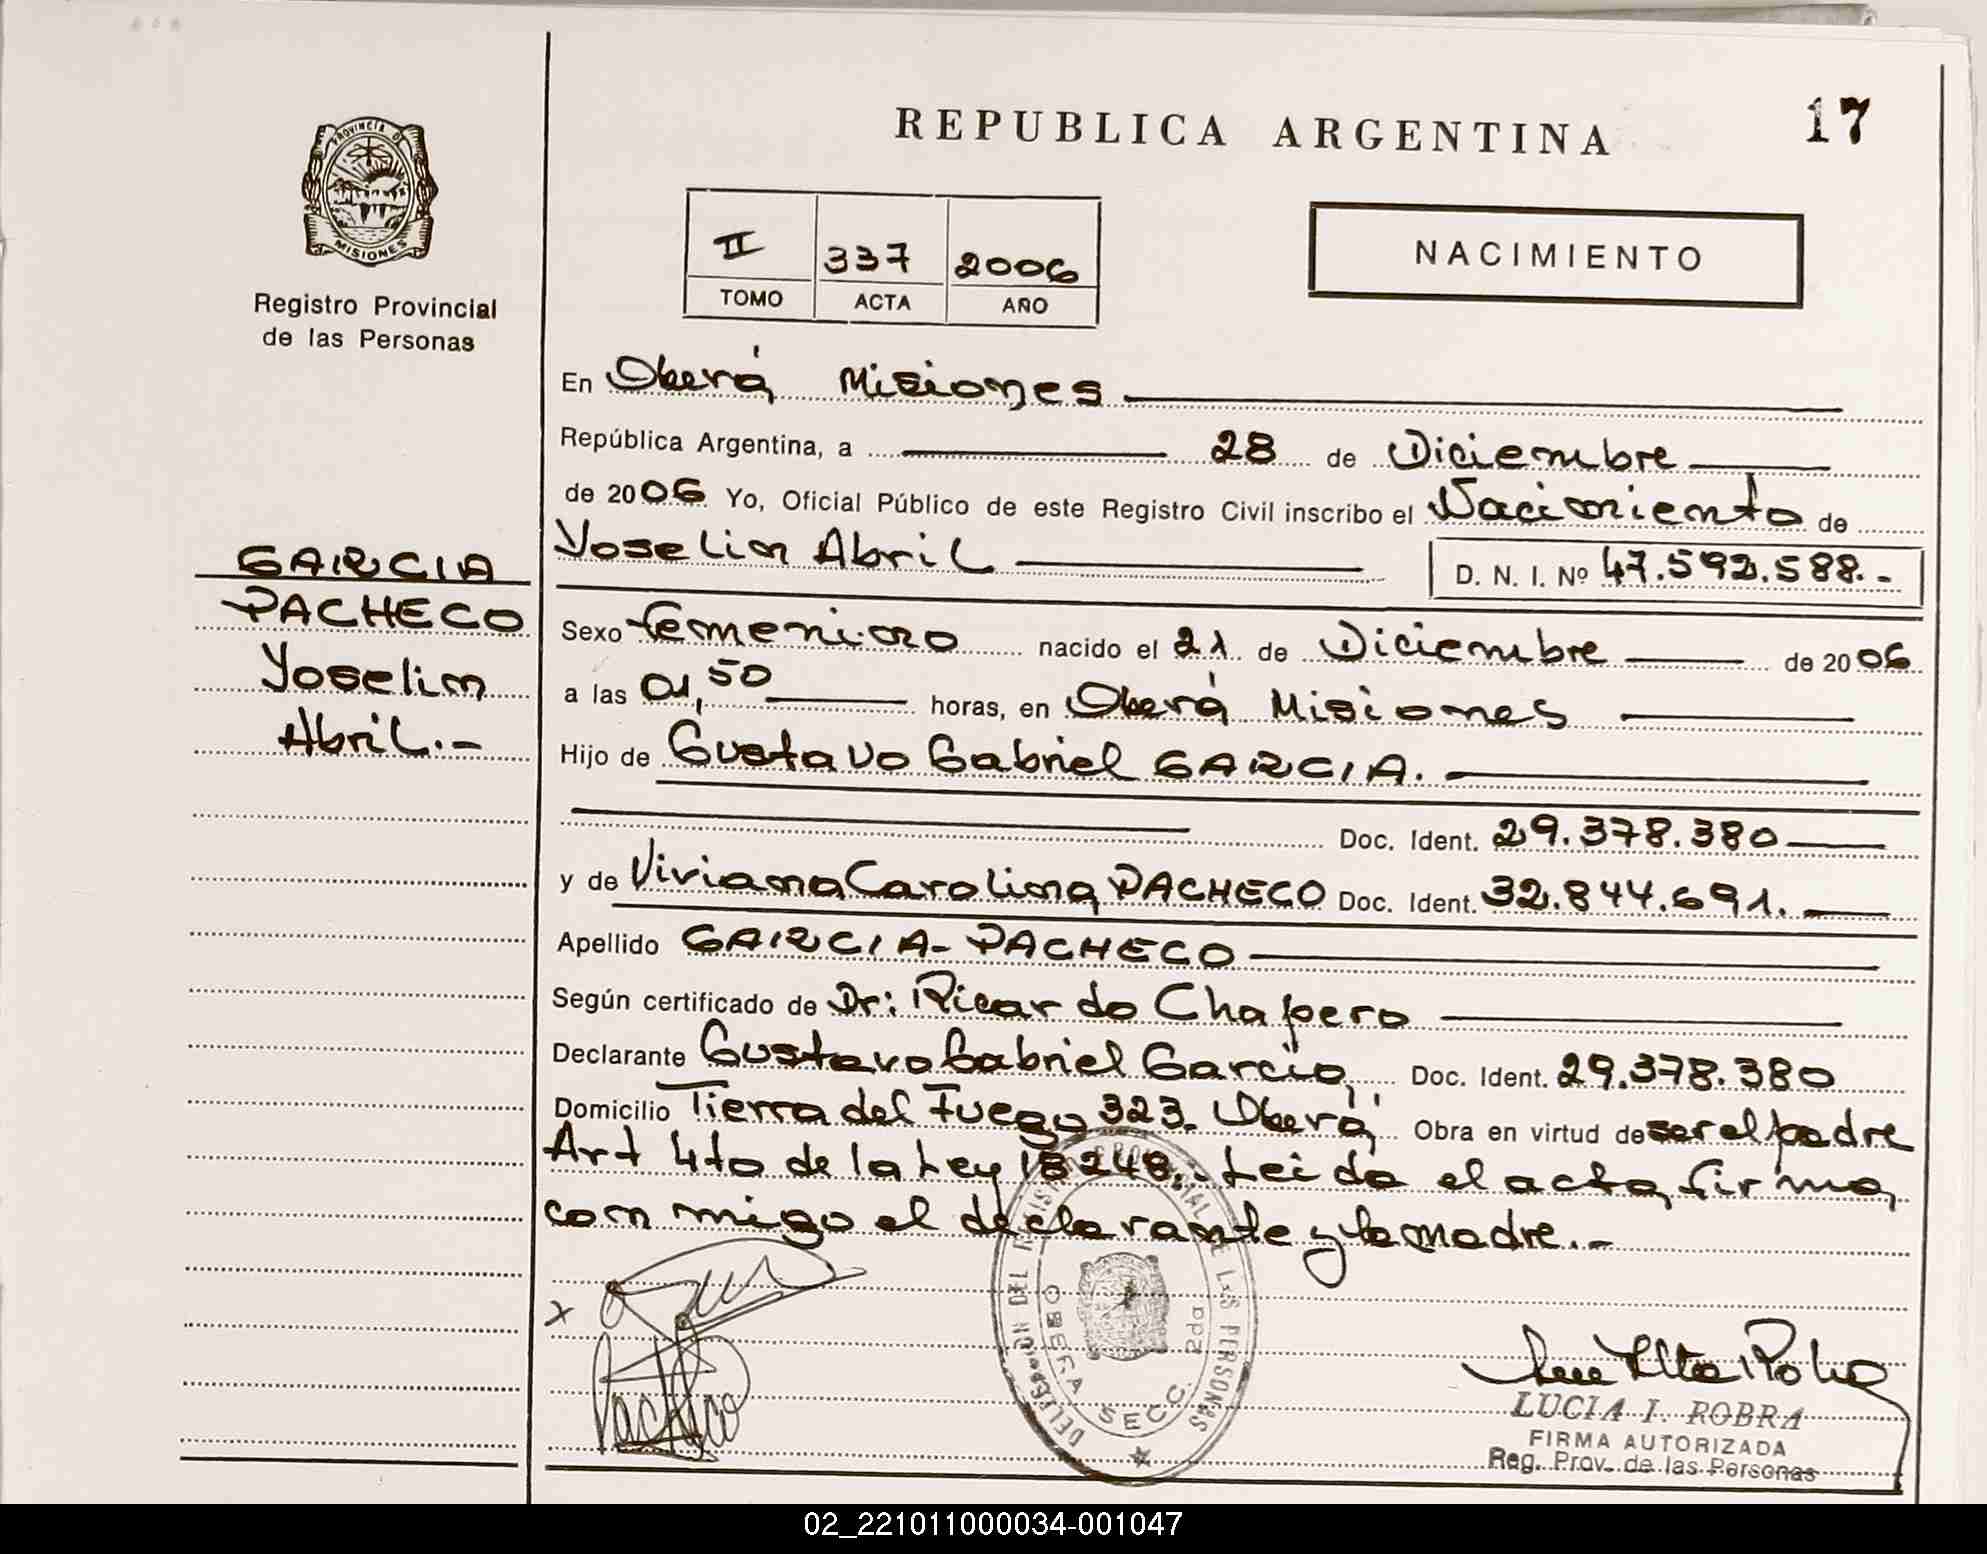 REPUBLICA ARGENTINA
17
PROVINCIA D
MISIONES
Registro Provincial
de las Personas
II 337 2006
TOMO ACTA AÑO
NACIMIENTO
En Oberá Misiones
República Argentina, a 28 de Diciembre
de 2006 Yo, Oficial Público de este Registro Civil inscribo el Nacimiento de
Yoselin Abril D. N. I. Nº 47.592.588.-
GARCIA
PACHECO
Yoselin
Abril.-
Sexo femenino nacido el 21 de Diciembre de 2006
a las 01,50 horas, en Oberá Misiones
Hijo de Gustavo Gabriel GARCIA.
Doc. Ident. 29.378.380
y de Viviana Carolina PACHECO Doc. Ident. 32.844.691.
Apellido GARCIA-PACHECO
Según certificado de Dr: Ricardo Chapero
Declarante Gustavo Gabriel Garcia Doc. Ident. 29.378.380
Domicilio Tierra del Fuego 323. Oberá Obra en virtud de ser el padre
Art 4to de la Ley 18248.. Leida el acta, firma
conmigo el declarante y la madre.-
x
Pacheco
DELEGACION DEL REGISTRO PROVINCIAL DE LAS PERSONAS
OBERA SECC. 2da
LUCIA I. ROBRA
FIRMA AUTORIZADA
Reg. Prov. de las Personas
02_221011000034-001047